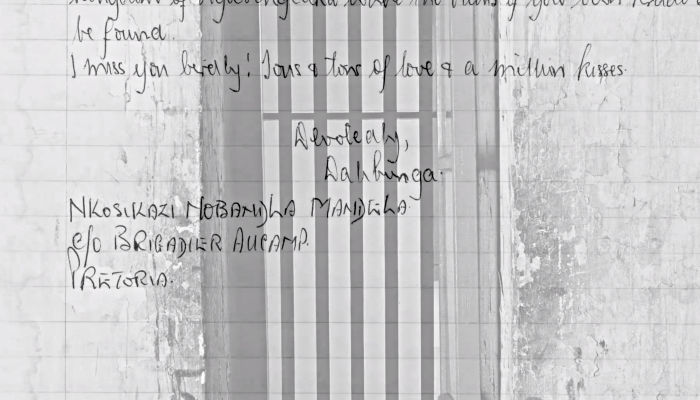 be found.
I miss you badly! Tons & tons of love & a million kisses.
Devotedly,
Dalibunga.
NKOSIKAZI NOBANDLA MANDELA
c/o BRIGADIER AUCAMP.
PRETORIA.